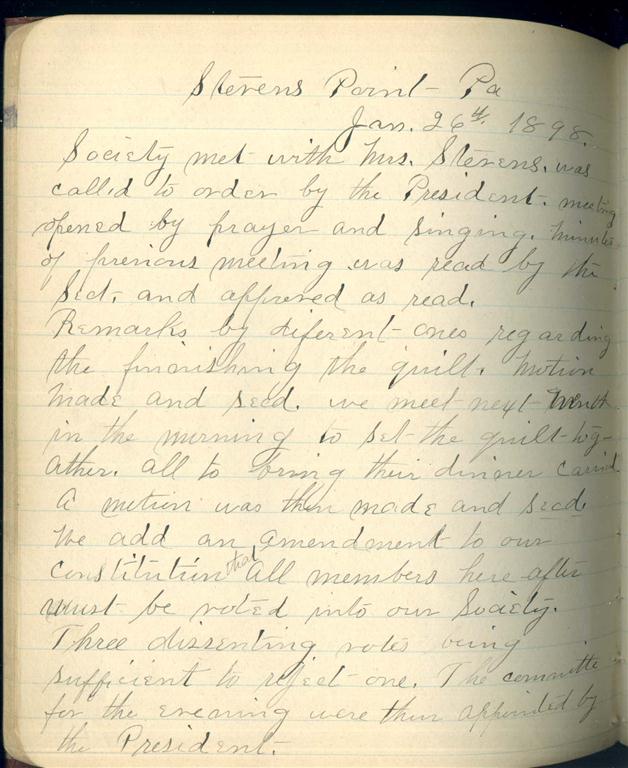 Stevens Point - Pa
Jan. 26th. 1898.
Society met with Mrs. Stevens. was
called to order by the President. meeting
opened by prayer and singing. minutes
of previous meeting was read by the
Sect. and approved as read.
Remarks by diferent ones regarding
the finnishing the quilt. Motion
made and secd. we meet next month
in the morning to set the quilt tog-
ather. all to bring their dinner carried
A motion was then made and secd.
We add an amendment to our
constitution that all members here after
must be voted into our Society.
Three dissenting votes being
sufficient to reject one. The committe
for the evening were then appointed by
the President.